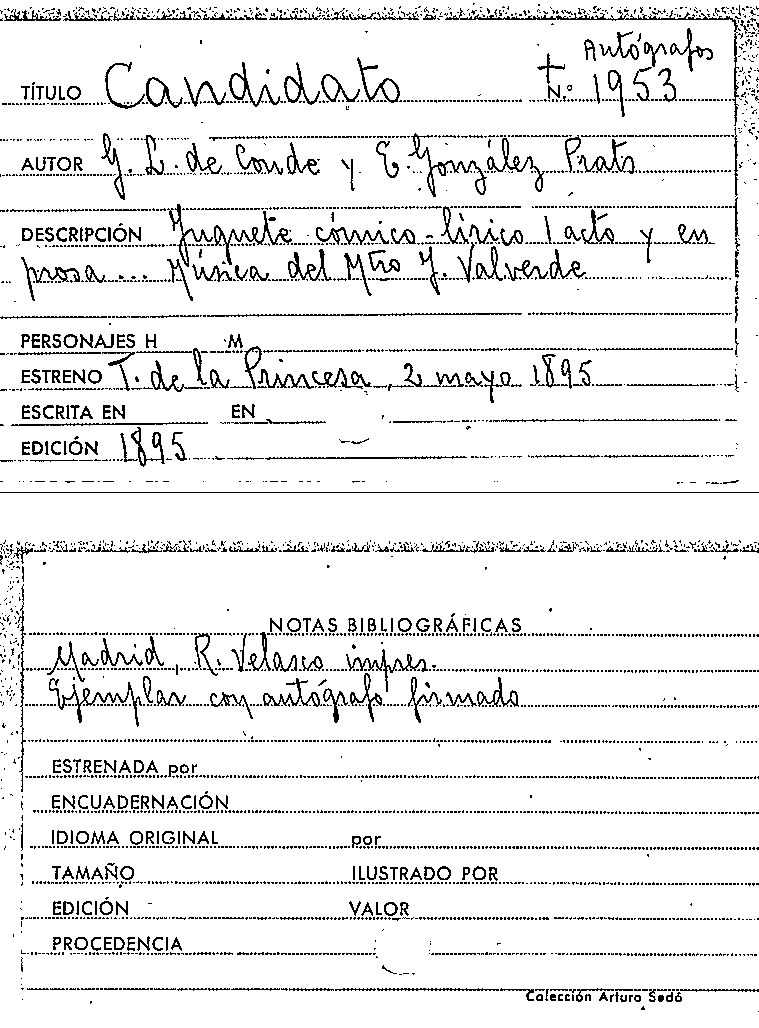 Autógrafos
TÍTULO Candidato N.º 1953
AUTOR G. L. de Conde y E. González Prats
DESCRIPCIÓN Juguete cómico-lírico 1 acto y en
prosa... Música del Mtro J. Valverde
PERSONAJES H M
ESTRENO T. de la Princesa, 2 mayo 1895
ESCRITA EN EN
EDICIÓN 1895
NOTAS BIBLIOGRÁFICAS
Madrid, R. Velasco impres.
Ejemplar con autógrafo firmado
ESTRENADA por
ENCUADERNACIÓN
IDIOMA ORIGINAL por
TAMAÑO ILUSTRADO POR
EDICIÓN VALOR
PROCEDENCIA
Colección Arturo Sedó